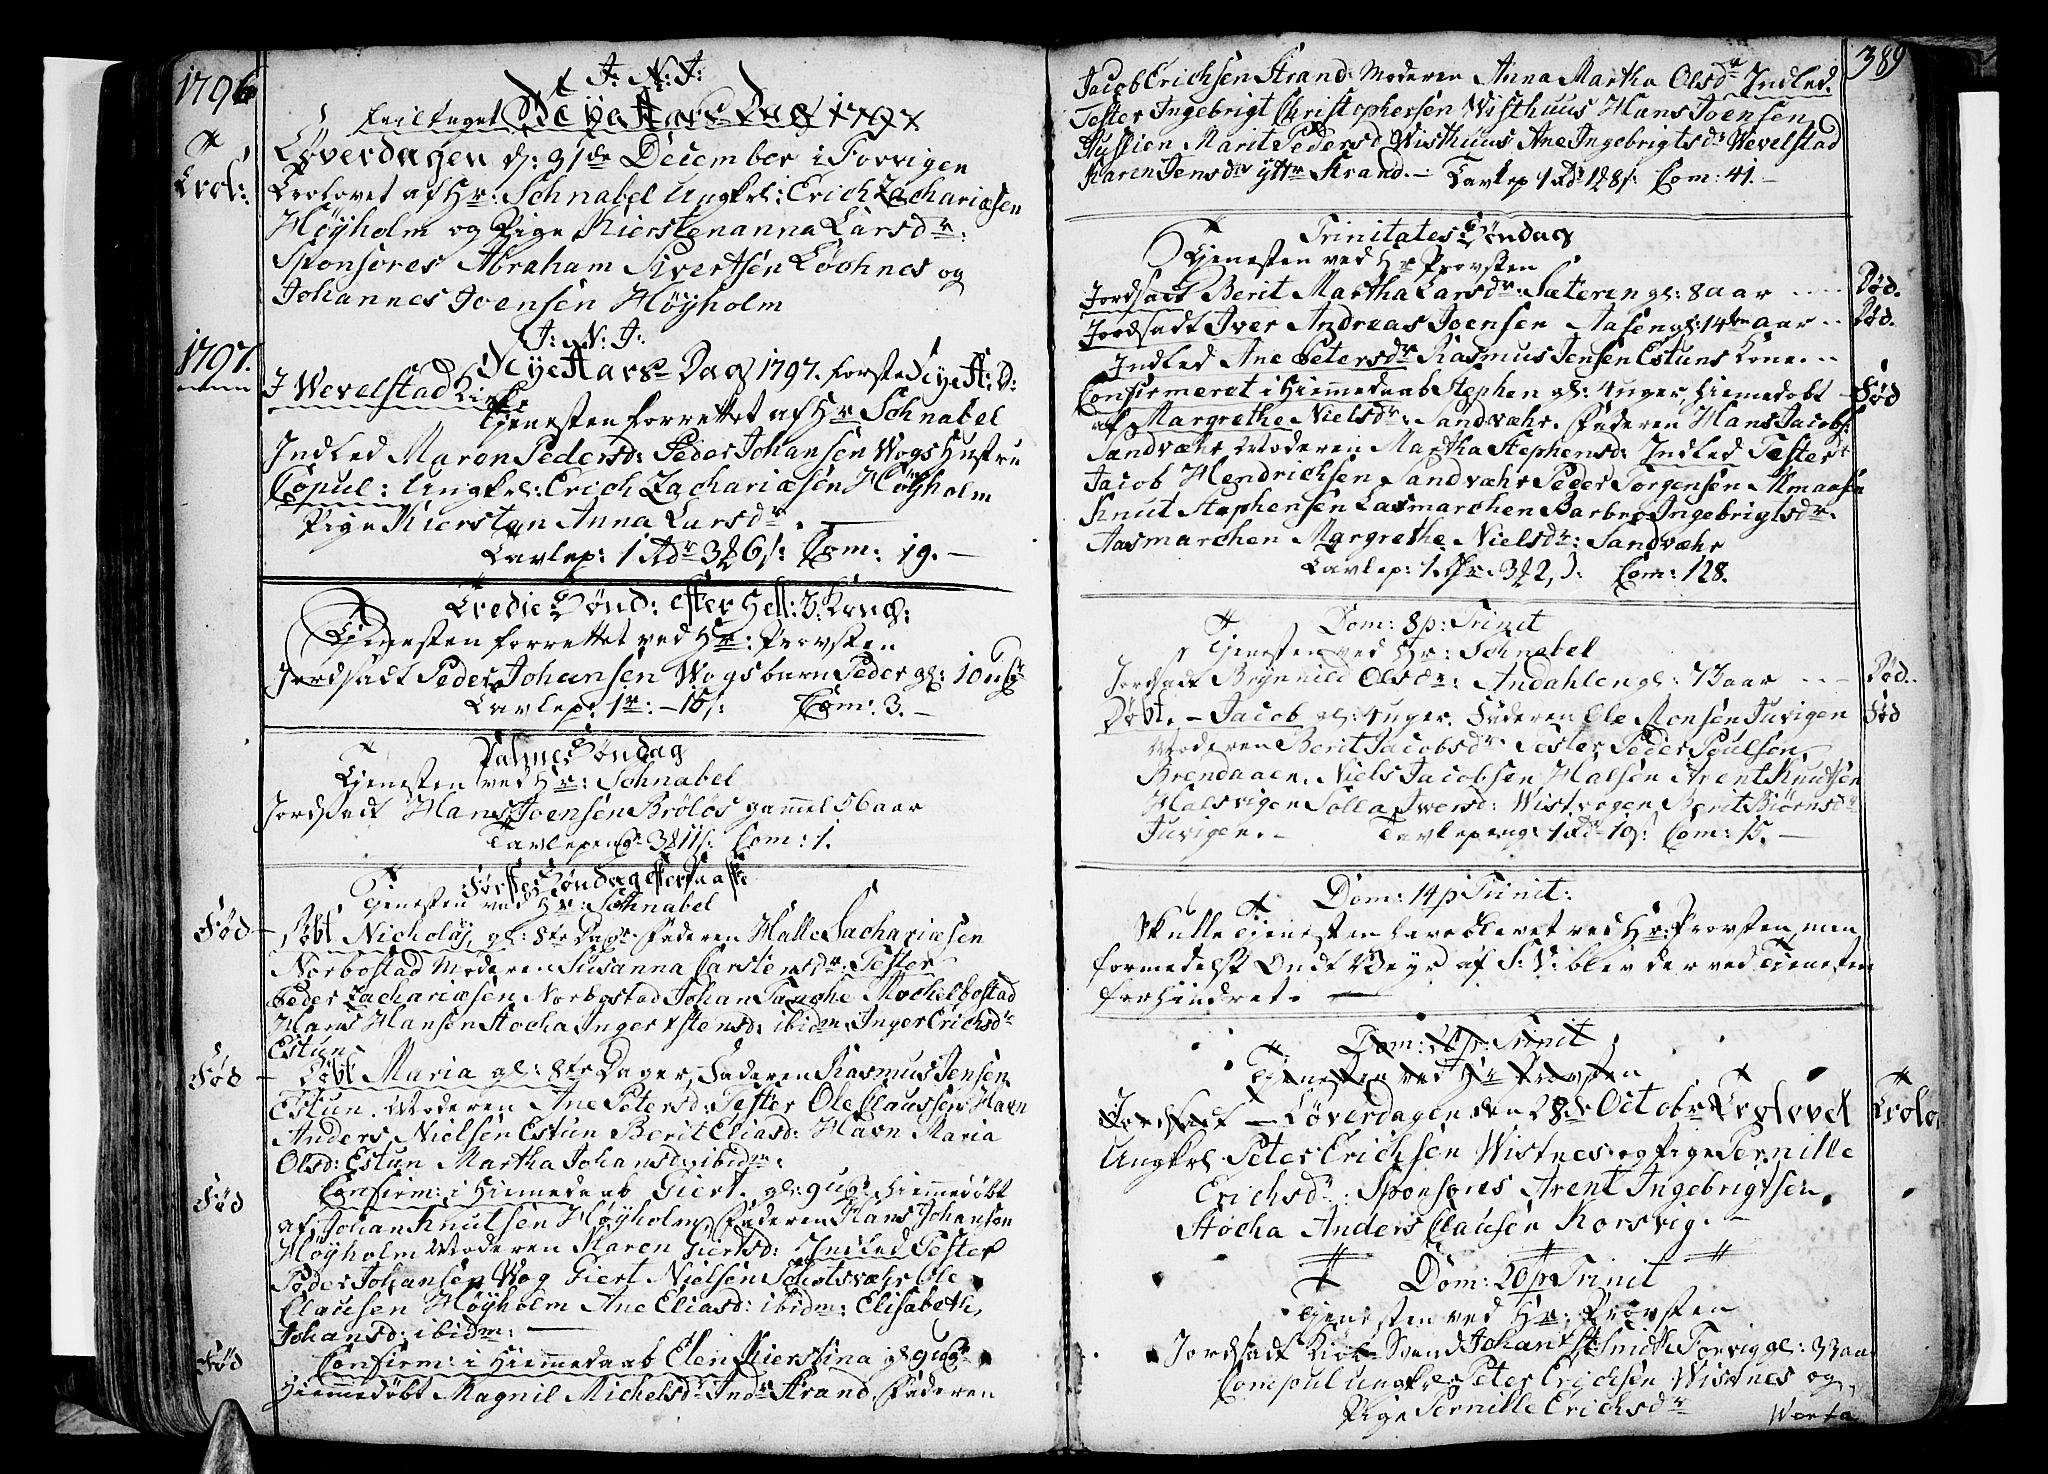 1796
J: N: J:
feiltaget Neye Aars Dag 1797
Løverdagen d: 31de December i Forvigen
Trol:
Trolovet af Hr: Schnabel Ungkrl: Erich Zachariæsen
Høyholm og Pige Kierstenanna Larsdr:
Sponsores Abraham Sivertsen Løchnes og
Johannes Joensen Høyholm
J: N: J:
1797.
Neye Aars Dag 1797. forste Neye A: D:
I Wevelstad Kirke
Tienesten forrettet af Hr Schnabel
Indled Maren Pedersd: Peder Johansen Wogs Hustru
Copul: Ungkrl: Erich Zachariæsen Høyholm
Pige Kiersten Anna Larsdr.
Tavlep: 1 Rdr 3 6 s: Com: 19.
Tredie Sønd: efter Hell: 3 Kong:
Tienesten forrettet ved Hr: Provsten
Jordsadt Peder Johansen Wogs barn Peder gl: 10 ug
Tavlep: 1 - 15 s: Com: 3.
Palme Søndag
Tienesten ved Hr: Schnabel
Jordsadt Hans Joensen Brøløs gammel 56 aar
Tavlepeng 3 11 s: Com: 1.
Første Søndag efter Paaske
Tienesten ved Hr: Schnabel
Fød - Døbt Nicholaj, gl: 8te Dage. Faderen Halle Sachariæsen
Norbostad Moderen Susanna Carstensdr: Tester
Peder Zachariæsen Norbostad Johan Tanche Mochelbostad
Hans Hansen Stocha Inger ibidm. Inger Erichsdr
Estun
Fød - Døbt Maria gl: 8te Dager, Faderen Rasmus Jensen
Estun. Moderen Ane Petersd: Tester Ole Claussen Havn
Anders Nielsen Estun Berit Eliasd: Havn Maria
Olsd: Estun Martha Johansd: ibidm:
Fød Confirm: i Hiemedaab Giert. gl: 9 ug: Hiemmedøbt
af Johan Knutsen Høyholm, Faderen Hans Johansen
Høyholm Moderen Karen Giertsd: Indled Tester
Peder Johansen Wog Giert Nielsen Ole
Clausen Høyholm Ane Eliasd: ibidm: Elisabeth
Johansd: ibidm:
Fød Confirm: i Hiemmedaab Elen Kierstina gl 9 ug
Hiemmedøbt Magnil Michelsdr Indr Strand Faderen
389
Jacob Erichsen Strand Moderen Anna Martha Olsdr Indled.
Tester Ingebrigt Christophersen Wisthuus Hans Joensen
Marit Pedersd Wisthuus Ane Ingebrigtsdr Wevelstad
Karen Jensdr yttr Strand. - Tavlep 1 Rdr 128 s. Com: 41. -
Trinitates Søndag
Tienesten ved Hr Provsten
Jordsadt Berit Martha Larsdr: Sæteren gl: 8 aar Død.
Jordsadt Iver Andreas Joensen Aasen gl: 14ten aar Død.
Indled Ane Petersdr Rasmus Jensen Estuns Kone.
Confirmeret i Hiemmedaab Stephen gl: 4 uger, hiemedøbt Fød
af Margrethe Nielsdr: Sandvær. Faderen Hans Jacobs:
Sandvær Moderen Martha Stephensd: Indled Tester
Jacob Hendrichsen Sandvær Peder Torgensen Almaasen
Knut Stephensen Aasmarchen Barbro Ingebrigtsdr.
Aasmarchen Margrethe Nielsdr: Sandvær
Tavlep: 1. 3 2 Com: 128.
Dom: 8 p: Trinit
Tienesten ved Hr: Schnabel
Jordsadt Brynnild Olsdr: Andahlen gl: 73 aar Død.
Døbt. - Jacob gl: 4 uger. Faderen Ole Monsen Juvigen Fød
Moderen Berit Jacobsdr Tester Peder Poulsen
Brendaaen. Niels Jacobsen Halsen Arent Knutsen
Halsvigen Solla Iversd: Wistvogen Berit Biørnsdr
Juvigen. - Tavlepeng 1 Rdr 19 s Com: 15. -
Dom: 14 p Trinit:
Skulle Tienesten have blevet ved Hr: Provsten, men
formedelst Ondt Veyr af S: V: blev der ved Tienesten
forhindret.
Dom: 20 p: Trinit
Tienesten ved Hr Provsten
Jordsadt - Løverdagen den 28de Octobr Trolovet Trolo.
Ungkrl Peter Erichsen Wistnes og Pige Pernille
Erichsdr: Sponsores Arent Ingebrigtsen
Stocha Anders Clausen Korsvig. -
Dom: 20 p Trinit
Tienesten ved Hr: Provsten
Jordsadt Johan Smith Forvig gl: 33 aar
Compul Ungkrl Peter Erichsen Wistnes og
Pige Pernille Erichsdr